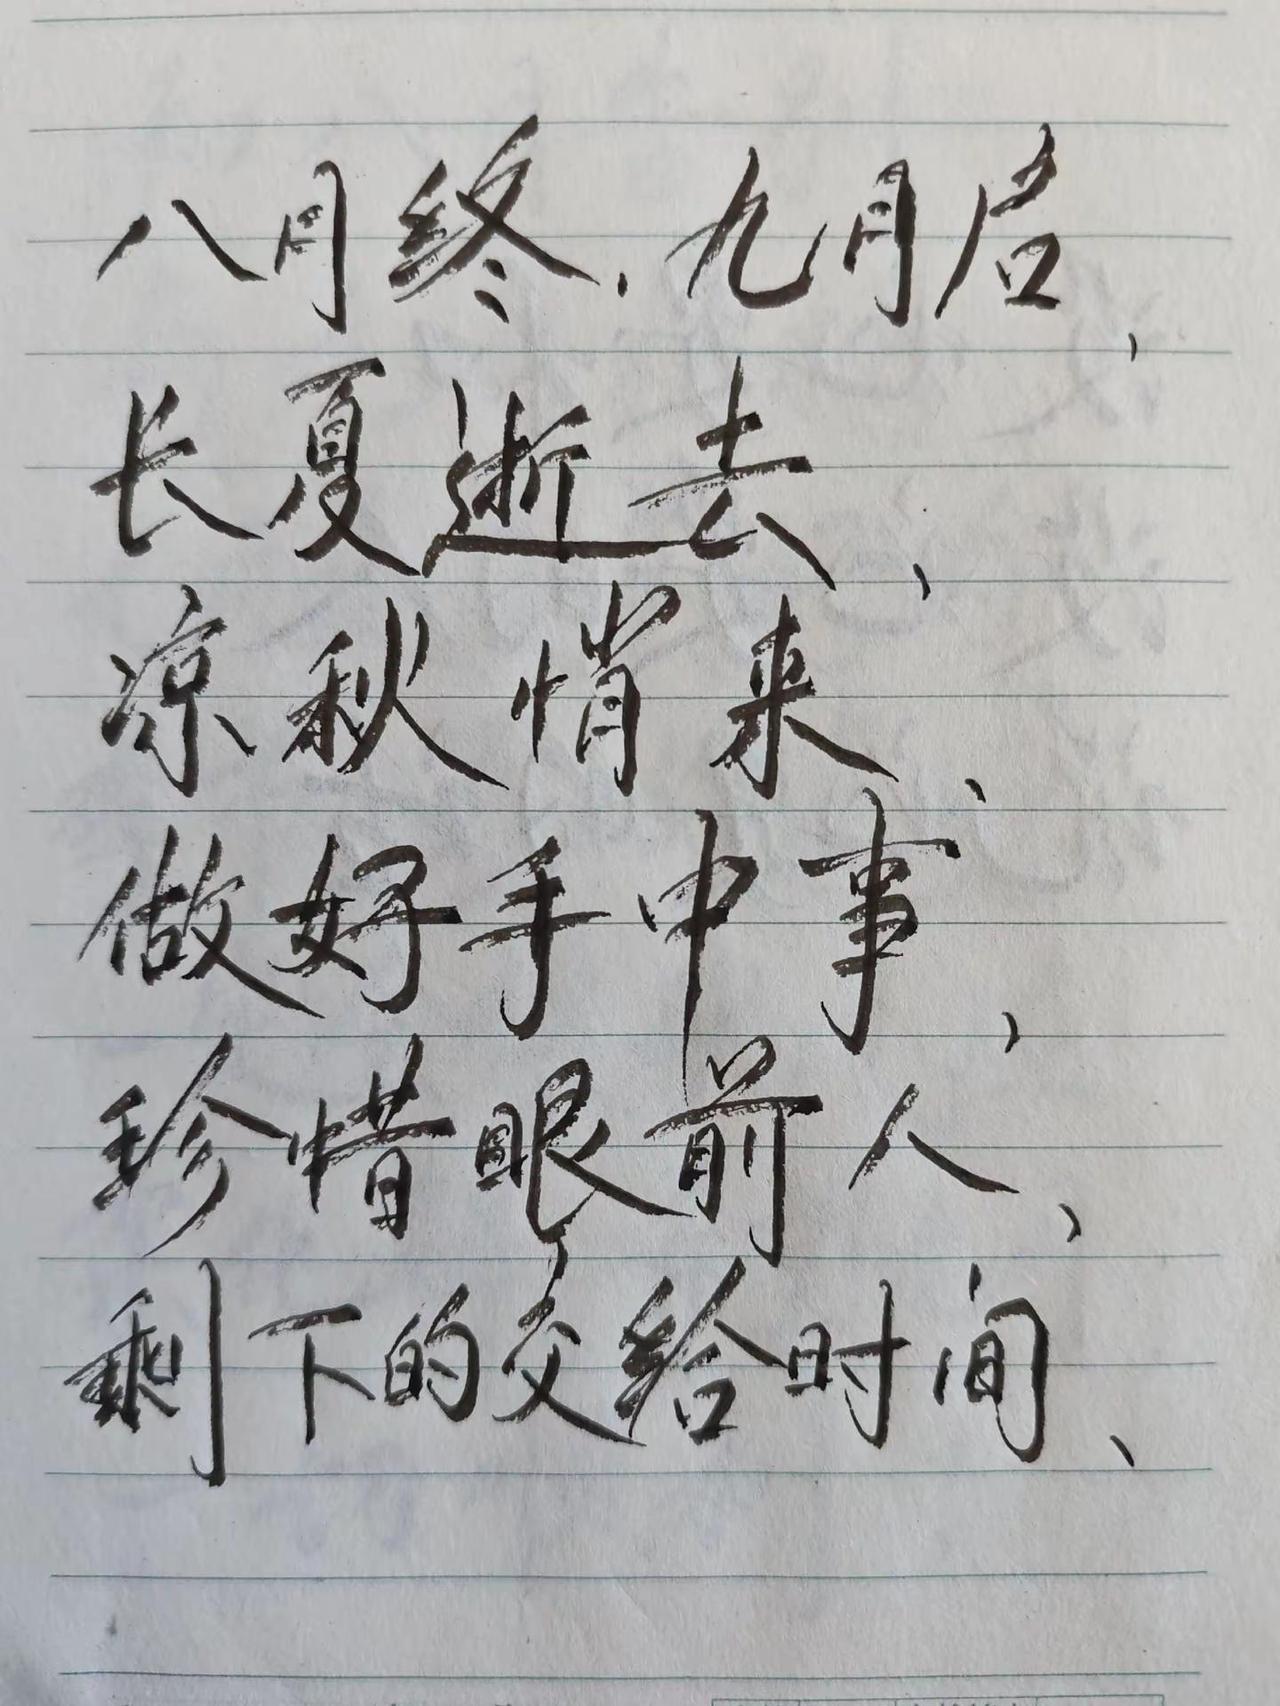 八月终、九月启、
长夏逝去、
凉秋悄来、
做好手中事、
珍惜眼前人、
剩下的交给时间、